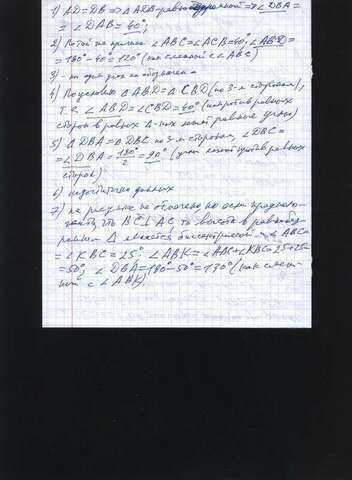 1) AD=DB => ΔADB-равнобедренный => ∠DBA=
= ∠DAB = 40°;
2) По той же причине ∠ABC=∠ACB=40°, ∠ABD=
=180°-40°=120° (как смежной с ∠ABC)
3) - ни один угол не обозначен
4) По условию ΔABD=ΔCBD (по 3-м сторонам),
т.е. ∠ABD=∠CBD=40° (напротив равных
сторон в равных Δ-ках лежат равные углы)
5) ΔDBA=ΔDBC по 3-м сторонам, ∠DBC=
=∠DBA=180°/2=90° (углы лежат против равных
сторон)
6) недостаточно данных
7) на рисунке не отмечено, но если предполо-
жить, что BC⊥AC, то высота в равнобед-
ренном Δ является биссектрисой и ∠ABC=
=∠KBC=25°. ∠ABK=∠ABC+∠KBC=25+25=
=50°; ∠DBA=180°-50°=130° (как смеж-
ный с ∠ABK).